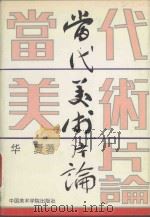 當代
美術
論
當代美术片論
华夏著
中国美术学院出版社